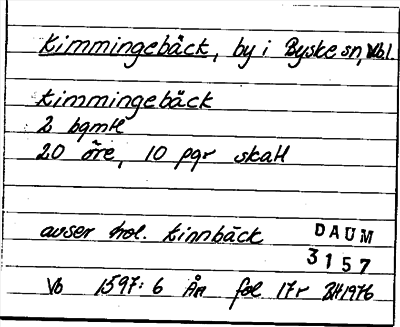 Kimmingebäck, by i Byske sn, Vbl.
Kimmingebäck
2 bgmH
20 öre, 10 pgr skatt
avser trol. Kinnbäck
DAUM
3157
Vb 1597:6 ÅR fol 17r BH1976